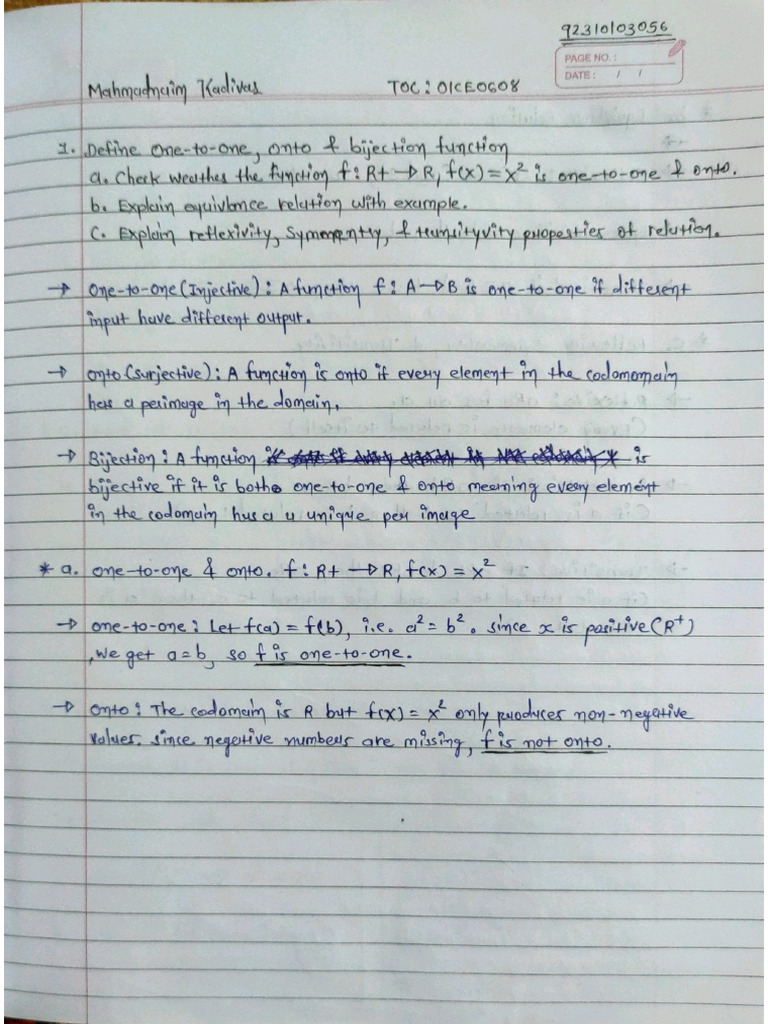 92310103056
PAGE NO. :
DATE : / /
Mahmadnaim Kadivas TOC : 01CE0608
1. Define one-to-one, onto & bijection function
a. Check weathes the function f : R+ → R, f(x) = x² is one-to-one & onto.
b. Explain equivlance relation with example.
c. Explain reflexivity, symmentry, & transityvity properties of relation.
→ one-to-one (Injective) : A function f : A → B is one-to-one if different
input have different output.
→ onto (surjective) : A function is onto if every element in the codomomain
has a perimage in the domain.
→ Bijection : A function is
bijective if it is both one-to-one & onto meaning every element
in the codomain has a u unique per image
* a. one-to-one & onto. f : R+ → R, f(x) = x²
→ one-to-one : Let f(a) = f(b), i.e. a² = b². since x is positive (R⁺)
, we get a = b, so f is one-to-one.
→ onto : The codomain is R but f(x) = x² only produces non-negative
values. since negative numbers are missing, f is not onto.